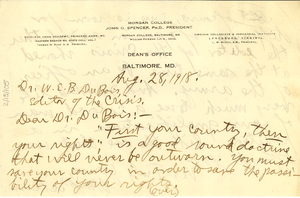 MORGAN COLLEGE
JOHN O. SPENCER, PH.D., PRESIDENT
MORGAN COLLEGE, BALTIMORE, MD.
DEAN'S OFFICE
BALTIMORE, MD.
Aug. 28, 1918.
Dr. W. E. B. DuBois,
Editor of the Crisis.
Dear Dr. DuBois:—
"First your country, then
your rights," is a good round doctrine
that will never be outworn. You must
save your country in order to save the possi-
bility of your rights.
(over)